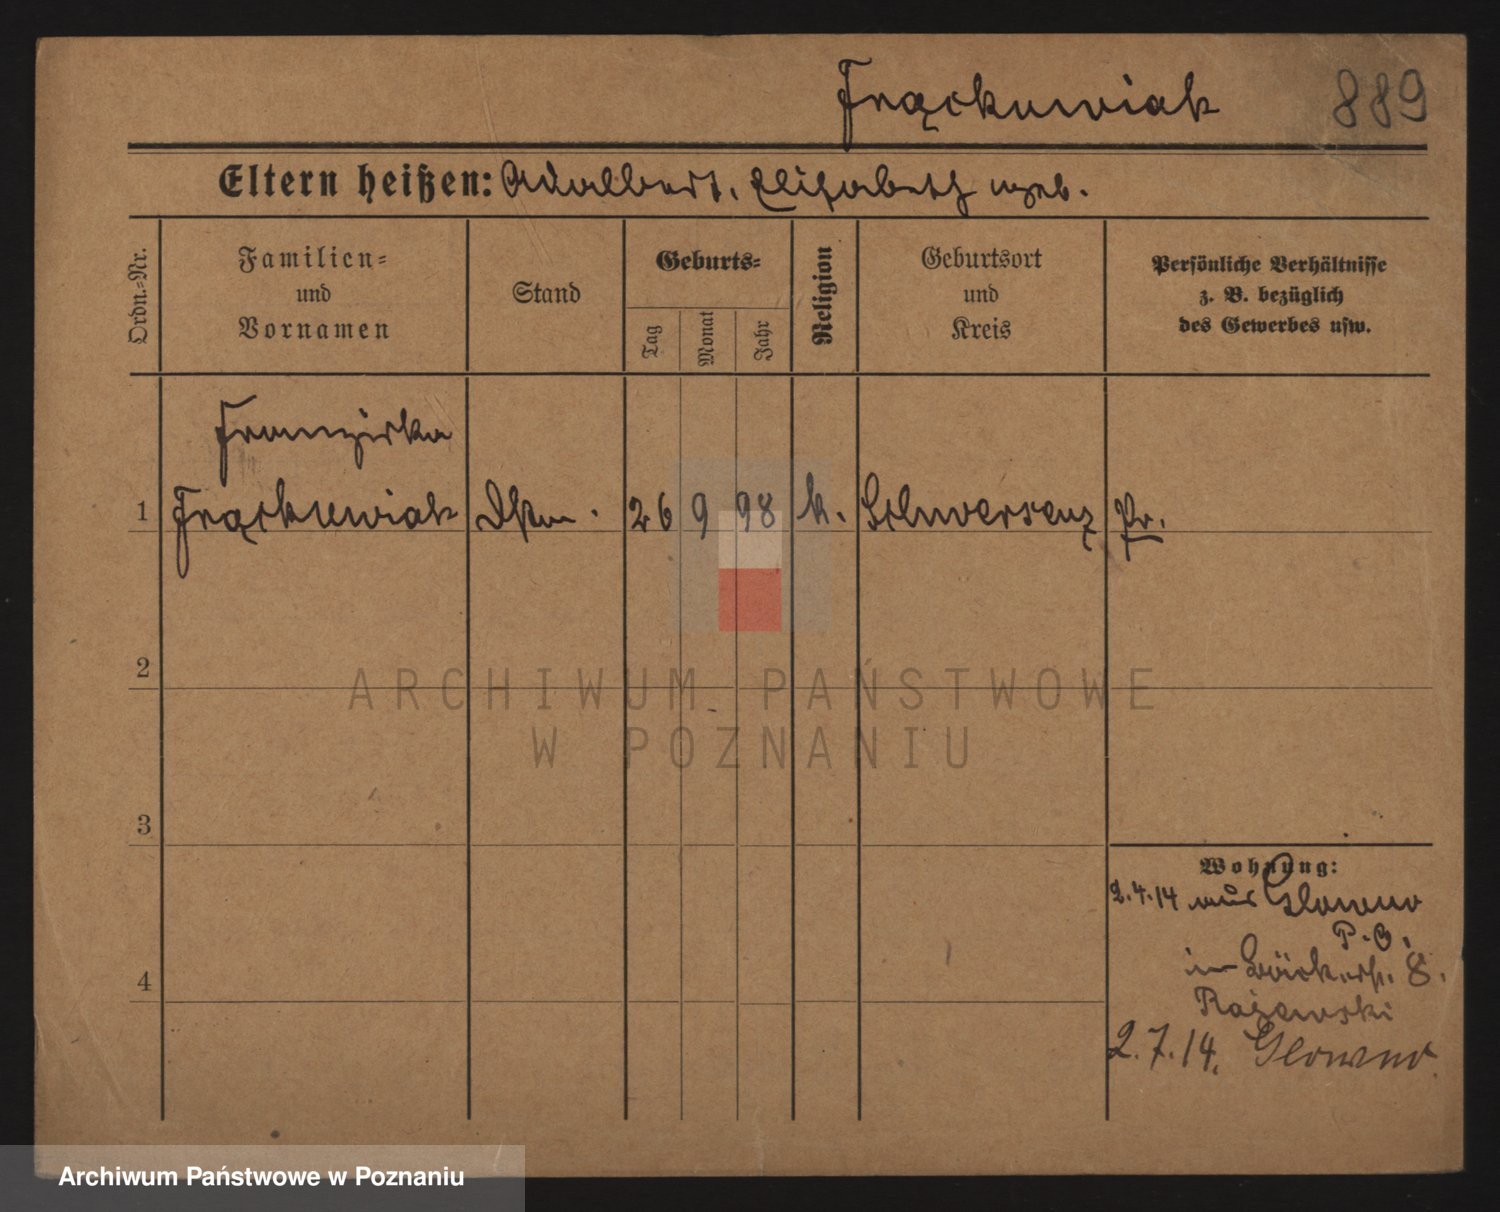 Frąckowiak 889
Eltern heißen: Adalbert, Elisabeth geb.
Ordn.-Nr.
Familien-
und
Vornamen
Stand
Geburts-
Tag
Monat
Jahr
Religion
Geburtsort
und
Kreis
Persönliche Verhältnisse
z. B. bezüglich
des Gewerbes usw.
Franziska
1 Frąckowiak 26 9 98 k. Schwersenz Pr.
2
3
4
Wohnung:
2.4.14 aus Glowno
P. O.
in Bäckerstr. 8.
Rażewski
2.7.14. Glowno.
ARCHIWUM PAŃSTWOWE
W POZNANIU
Archiwum Państwowe w Poznaniu